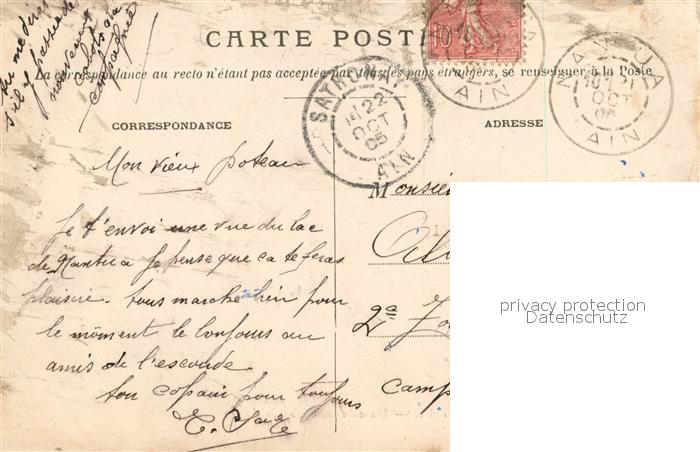 Tu me diras
s'il y
nouveaux
compagnie
CARTE POST
La correspondance au recto n'étant pas acceptée par tous les pays étrangers, se renseigner à la Poste
CORRESPONDANCE
ADRESSE
10
SATHONAY
22
OCT
05
AIN
AIN
NANTUA
OCT
05
AIN
Mon vieux poteau
Je t'envoi une vue du lac
de Nantua Je pense que ca te feras
plaisir. tous marche bien pour
le moment le bonjour au
amis de l'escouade
ton copain pour toujours
Monsie
2e
Camp
privacy protection
Datenschutz